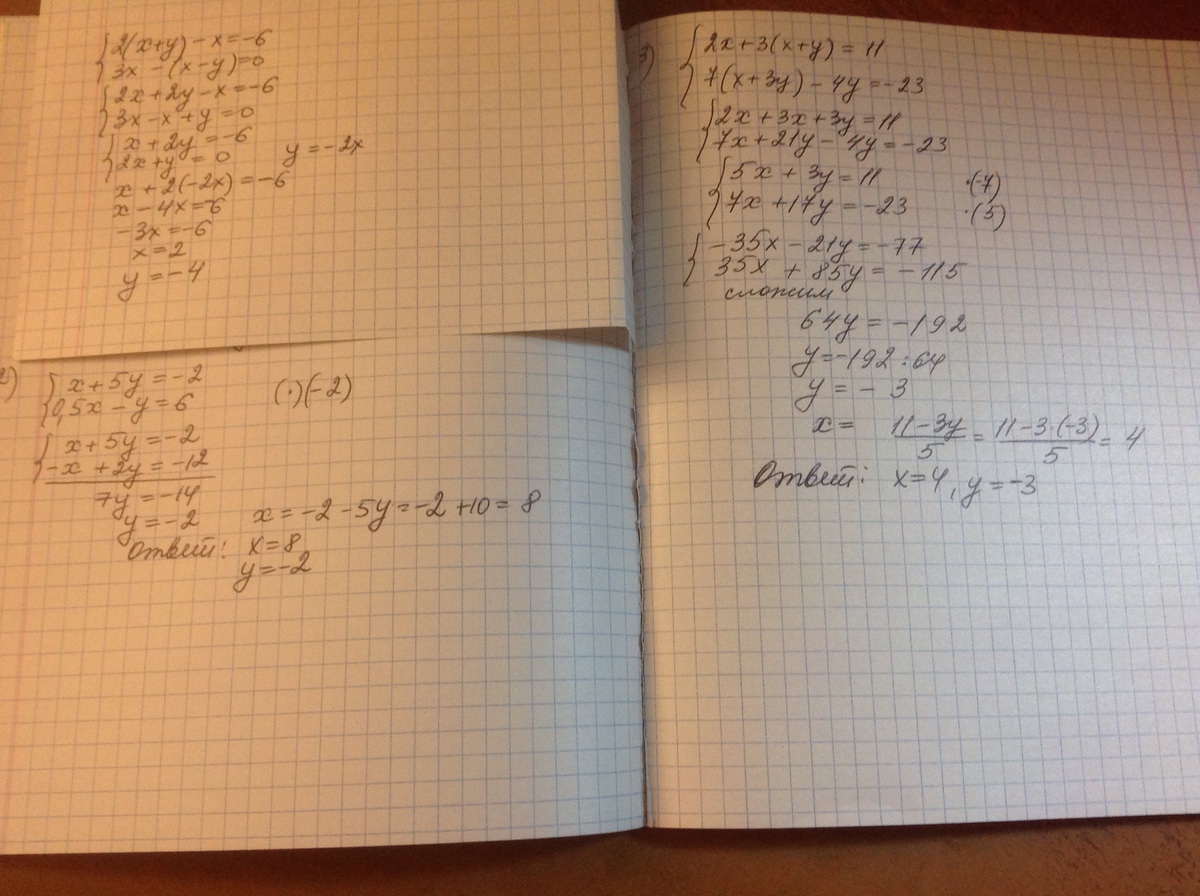 2(x+y)-x=-6
3x-(x-y)=0
2x+2y-x=-6
3x-x+y=0
x+2y=-6
2x+y=0 y=-2x
x+2(-2x)=-6
x-4x=-6
-3x=-6
x=2
y=-4
2)
x+5y=-2
0,5x-y=6 (·)(-2)
x+5y=-2
-x+2y=-12
7y=-14
y=-2 x=-2-5y=-2+10=8
Ответ: x=8
y=-2
3)
2x+3(x+y)=11
7(x+3y)-4y=-23
2x+3x+3y=11
7x+21y-4y=-23
5x+3y=11 ·(-7)
7x+17y=-23 ·(5)
-35x-21y=-77
35x+85y=-115
сложим
64y=-192
y=-192:64
y=-3
x= (11-3y)/5 = (11-3·(-3))/5 = 4
Ответ: x=4, y=-3